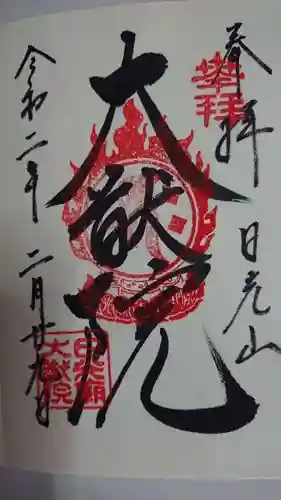 奉拝
日光山
大猷院
令和二年二月廿九日
奉拝
日光山
大猷院